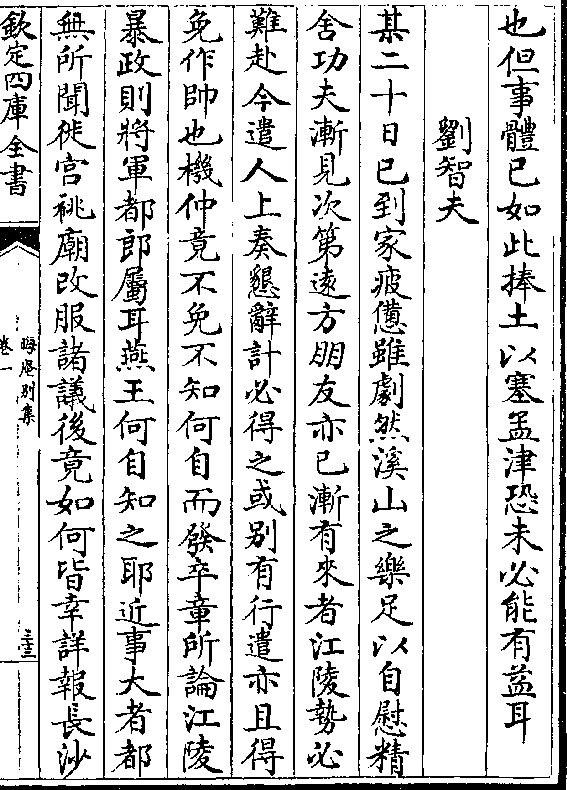 也但事體已如此捧土以塞孟津恐未必能有益耳
劉智夫
某二十日已到家疲憊雖劇然溪山之樂足以自慰精
舍功夫漸見次第遠方朋友亦已漸有來者江陵勢必
難赴今遣人上奏懇辭計必得之或别有行遣亦且得
免作帥也機仲竟不免不知何自而發卒章所論江陵
暴政則將軍都郎屬耳燕王何自知之耶近事大者都
無所聞徙宫祧廟改服諸議後竟如何皆幸詳報長沙
欽定四庫全書
晦庵别集
卷一